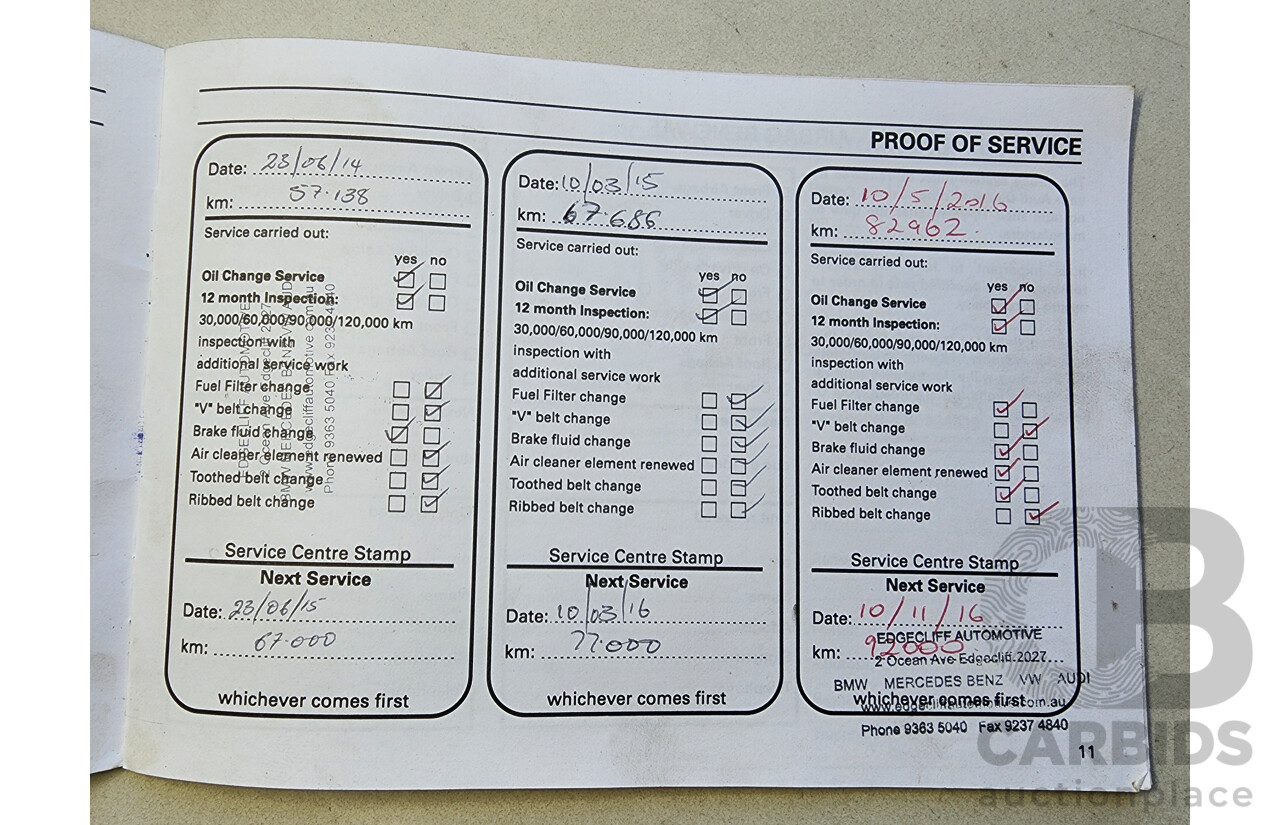 PROOF OF SERVICE
Date: 23/06/14
km: 57.138
Service carried out:
yes no
Oil Change Service
12 month Inspection:
30,000/60,000/90,000/120,000 km
inspection with
additional service work
Fuel Filter change
"V" belt change
Brake fluid change
Air cleaner element renewed
Toothed belt change
Ribbed belt change
2 Ocean Ave Edgecliff 2027
BMW MERCEDES BENZ VW AUDI
www.edgecliffautomotive.com.au
Phone 9363 5040 Fax 9237 4840
Service Centre Stamp
Next Service
Date: 23/06/15
km: 67.000
whichever comes first
Date: 10/03/15
km: 67.686
Service carried out:
yes no
Oil Change Service
12 month Inspection:
30,000/60,000/90,000/120,000 km
inspection with
additional service work
Fuel Filter change
"V" belt change
Brake fluid change
Air cleaner element renewed
Toothed belt change
Ribbed belt change
Service Centre Stamp
Next Service
Date: 10/03/16
km: 77.000
whichever comes first
Date: 10/5/2016
km: 82962.
Service carried out:
yes no
Oil Change Service
12 month Inspection:
30,000/60,000/90,000/120,000 km
inspection with
additional service work
Fuel Filter change
"V" belt change
Brake fluid change
Air cleaner element renewed
Toothed belt change
Ribbed belt change
Service Centre Stamp
Next Service
Date: 10/11/16
EDGECLIFF AUTOMOTIVE
km: 92000
2 Ocean Ave Edgecliff 2027
BMW MERCEDES BENZ VW AUDI
whichever comes first
www.edgecliffautomotive.com.au
Phone 9363 5040 Fax 9237 4840
11
CARBIDS
auctionplace